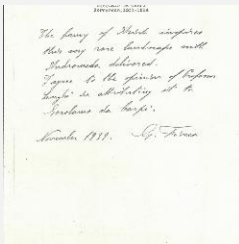 The fancy of Ariosto inspires
this very rare landscape with
Andromeda, delivered.
I agree to the opinion of Professor
Longhi in attributing it to
Gerolamo da Carpi.
November